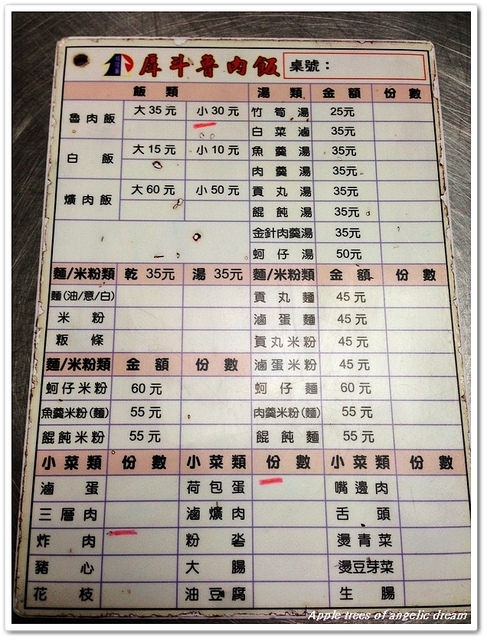 犀斗魯肉飯 桌號：
飯類 湯類 金額 份數
魯肉飯 大35元 小30元 竹筍湯 25元
白菜滷 35元
白飯 大15元 小10元 魚羹湯 35元
肉羹湯 35元
爌肉飯 大60元 小50元 貢丸湯 35元
餛飩湯 35元
金針肉羹湯 35元
蚵仔湯 50元
麵/米粉類 乾35元 湯35元 麵/米粉類 金額 份數
麵(油/意/白) 貢丸麵 45元
米粉 滷蛋麵 45元
粄條 貢丸米粉 45元
麵/米粉類 金額 份數 滷蛋米粉 45元
蚵仔米粉 60元 蚵仔麵 60元
魚羹米粉(麵) 55元 肉羹米粉(麵) 55元
餛飩米粉 55元 餛飩麵 55元
小菜類 份數 小菜類 份數 小菜類 份數
滷蛋 荷包蛋 嘴邊肉
三層肉 滷爌肉 舌頭
炸肉 粉沯 燙青菜
豬心 大腸 燙豆芽菜
花枝 油豆腐 生腸
Apple trees of angelic dream